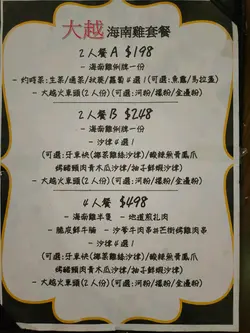 大越 海南雞套餐
2人餐A $198
- 海南雞例牌一份
- 灼時菜:生菜/通菜/秋葵/蘿蔔4選1(可選:魚露/馬拉盞)
- 大越火車頭(2人份)(可選:河粉/檬粉/金邊粉)
2人餐B $248
- 海南雞例牌一份
- 沙律4選1
(可選:牙車快(椰菜雞絲沙律)/酸辣無骨鳳爪
豬頸肉青木瓜沙律/柚子鮮蝦沙律)
- 大越火車頭(2人份)(可選:河粉/檬粉/金邊粉)
4人餐 $498
- 海南雞半隻 - 地道煎扎肉
- 脆皮鮮牛脷 - 沙嗲牛肉串&芒樹獨雞肉串
- 沙律4選1
(可選:牙車快(椰菜雞絲沙律)/酸辣無骨鳳爪
豬頸肉青木瓜沙律/柚子鮮蝦沙律)
- 大越火車頭(2人份)(可選:河粉/檬粉/金邊粉)